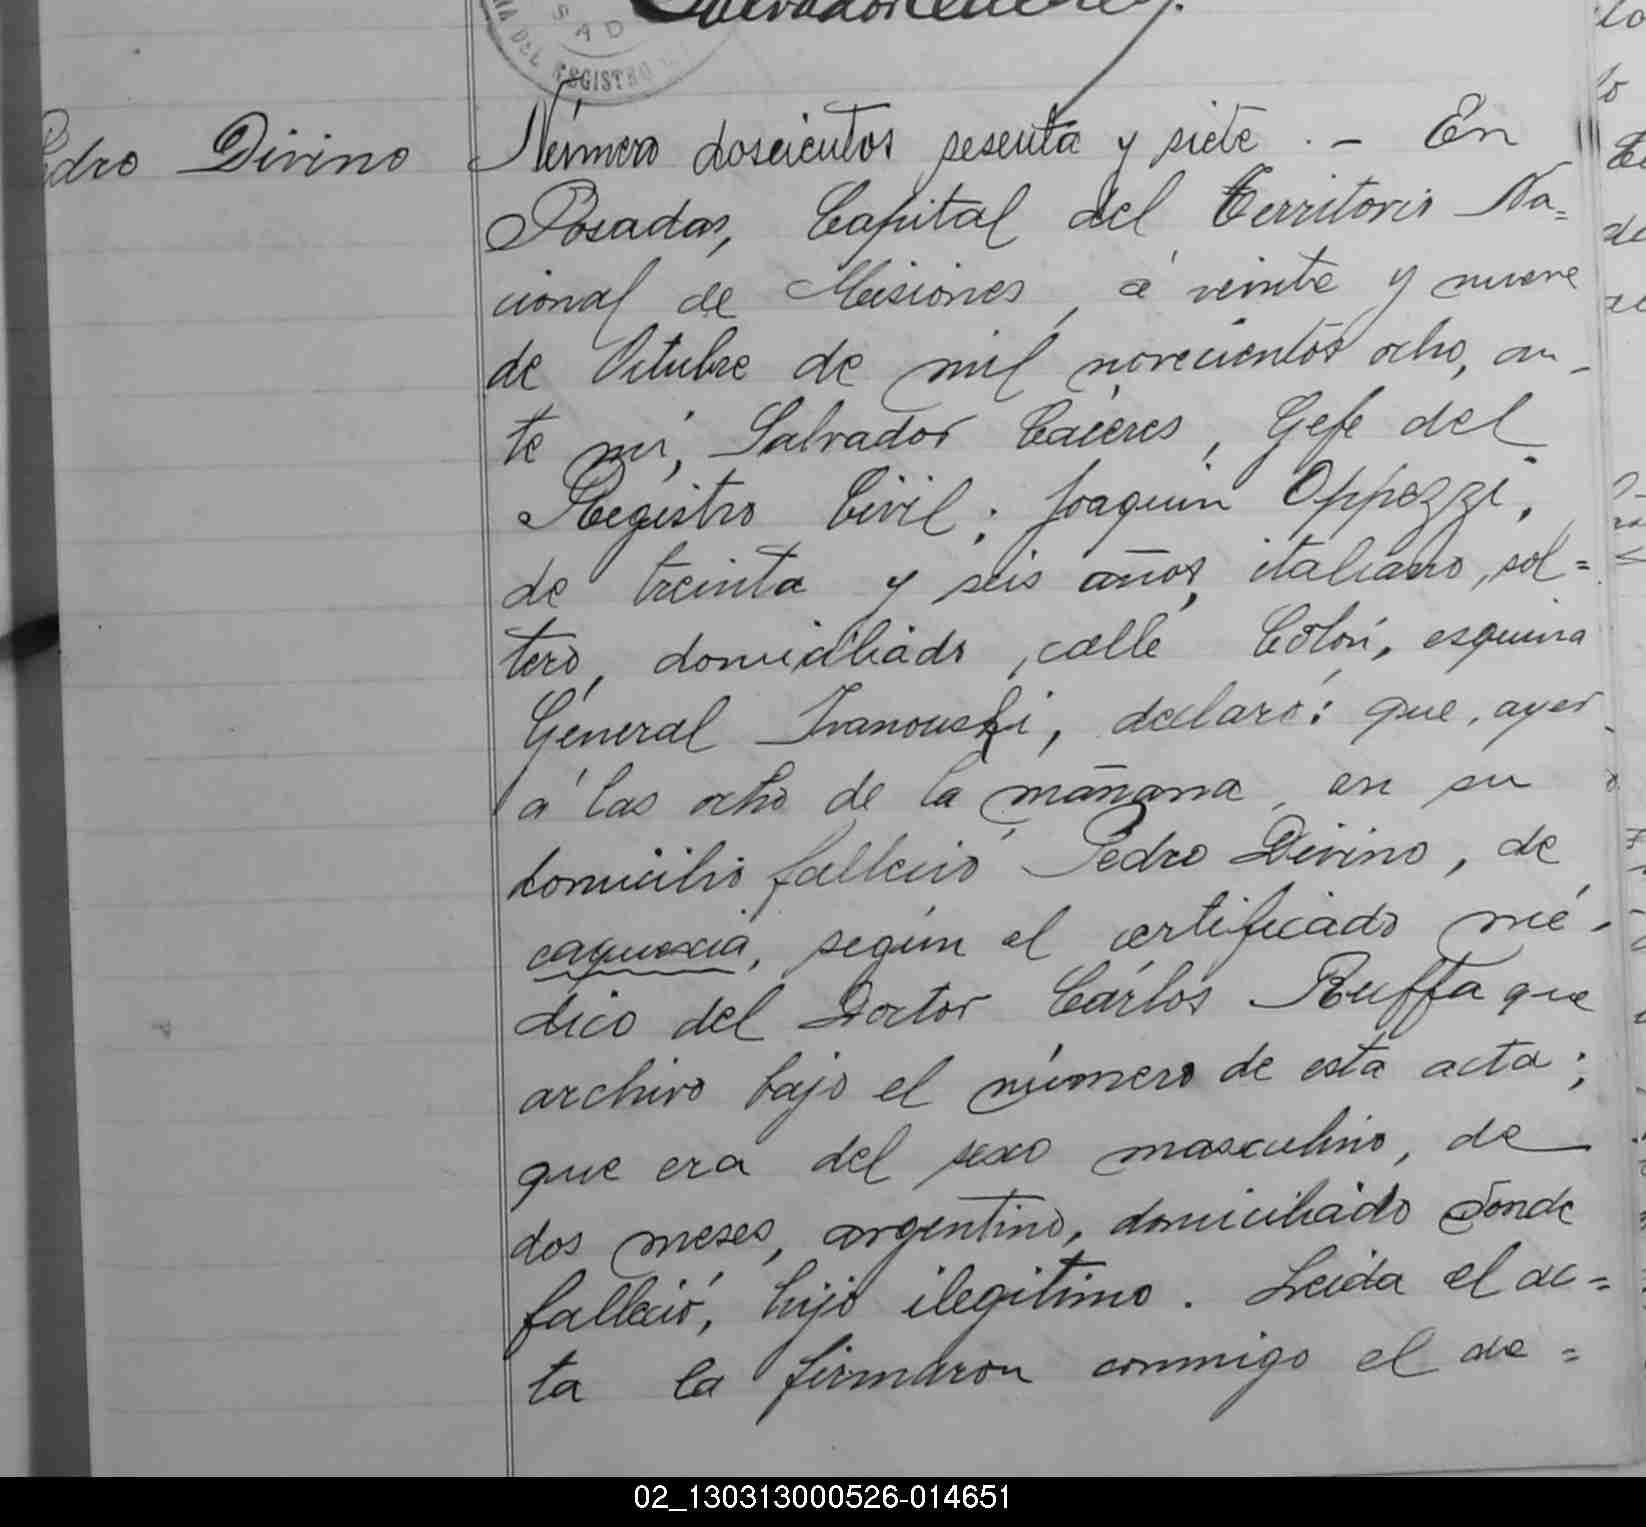 Salvador Cáceres.
S A D
NA DEL REGISTRO
Pedro Divino
Número doscientos sesenta y siete. - En
Posadas, Capital del Territorio Na=
cional de Misiones, á veinte y nueve
de Octubre de mil novecientos ocho, an-
te mí, Salvador Cáceres, Gefe del
Registro Civil; Joaquin Oppezzi,
de treinta y seis años, italiano, sol=
tero, domiciliado, calle Colón, esquina
General Ivanouski, declaró: que, ayer
á las ocho de la mañana, en su
domicilio falleció Pedro Divino, de
caquexia, según el certificado mé-
dico del Doctor Cárlos Ruffa que
archivo bajo el número de esta acta;
que era del sexo masculino, de
dos meses, argentino, domiciliado donde
falleció, hijo ilegítimo. Leida el ac=
ta la firmaron conmigo el de=
02_130313000526-014651